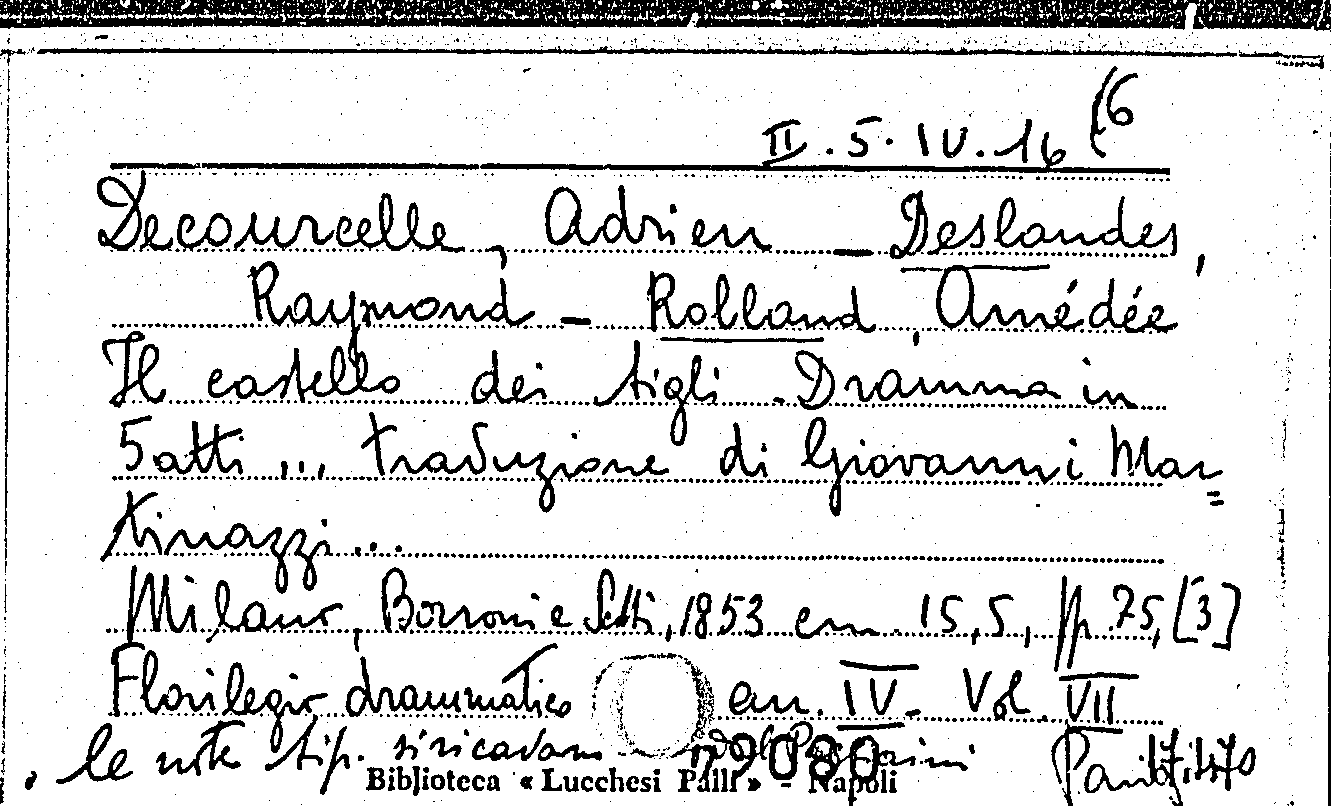 II.5.IV.16 (6
Decourcelle, Adrien – Deslandes,
Raymond – Rolland, Amédée
Il castello dei tigli. Dramma in
5 atti ... traduzione di Giovanni Mar=
tinazzi...
Milano, Borroni e Scotti, 1853 cm. 15,5, pp. 75, [3]
Florilegio drammatico an. IV – Vol. VII
le note tip. si ricavano
9080
Biblioteca « Lucchesi Palli » - Napoli